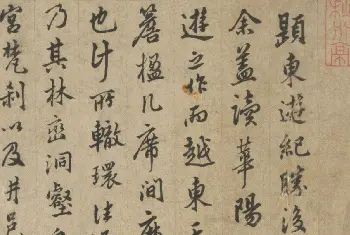 題東遊紀勝後
余蓋讀華陽
遊之作而越東
簷楹几席間
也计所轍環
乃其林巒洞壑
宮梵刹以及井邑